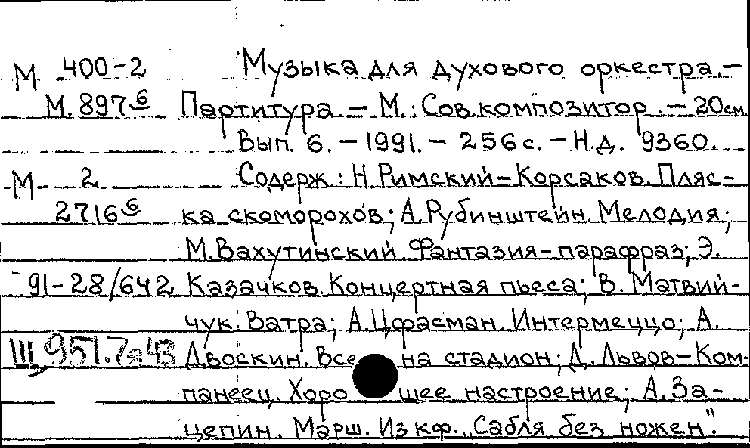 М 400-2 Музыка для духового оркестра.-
М.897 6 Партитура.- М.: Сов.композитор.-20см
Вып. 6.-1991.-256с.-Н.д. 9360.
М 2 Содерж.: Н.Римский-Корсаков. Пляс-
2716 6 ка скоморохов; А.Рубинштейн. Мелодия;
М.Вахутинский. Фантазия-парафраз; Э.
91-28/642 Казачков. Концертная пьеса; В. Матвий-
чук. Ватра; А.Цфасман. Интермеццо; А.
Щ951.7я43 Двоскин. Все на стадион; Д. Львов-Ком-
панеец. Хоро шее настроение; А.За-
цепин. Марш. Из кф. „Сабля без ножен".